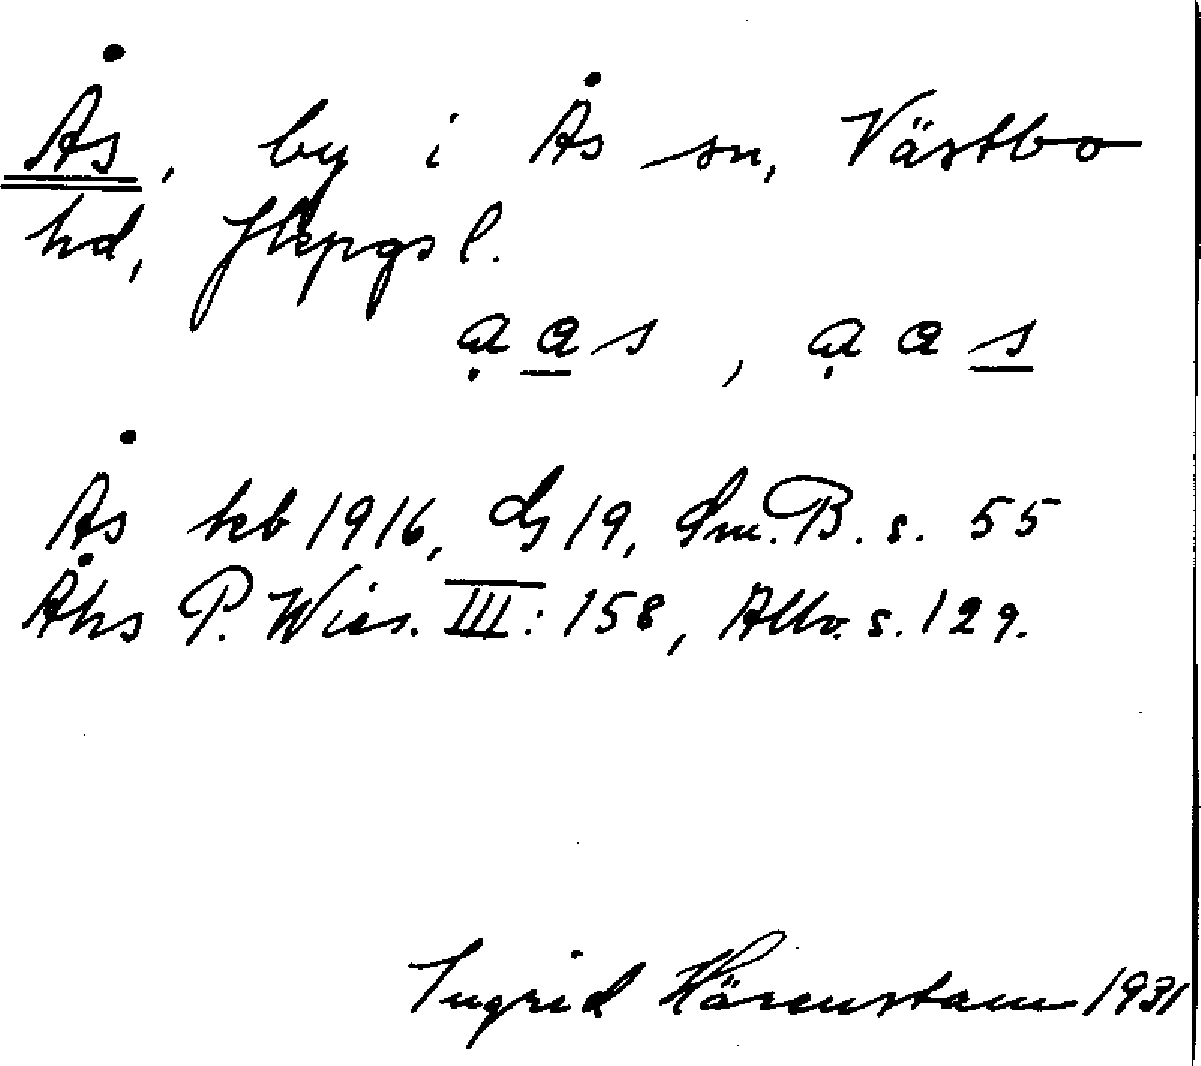 Ås, by i Ås sn, Västbo
hd, Jkpgs l.
ạa̲s, ạas̲
Ås kb 1916, G 19, Sm. B. s. 55
Åhs P. Wies. III: 158, Allv. s. 129.
Ingrid Härenstam 1931